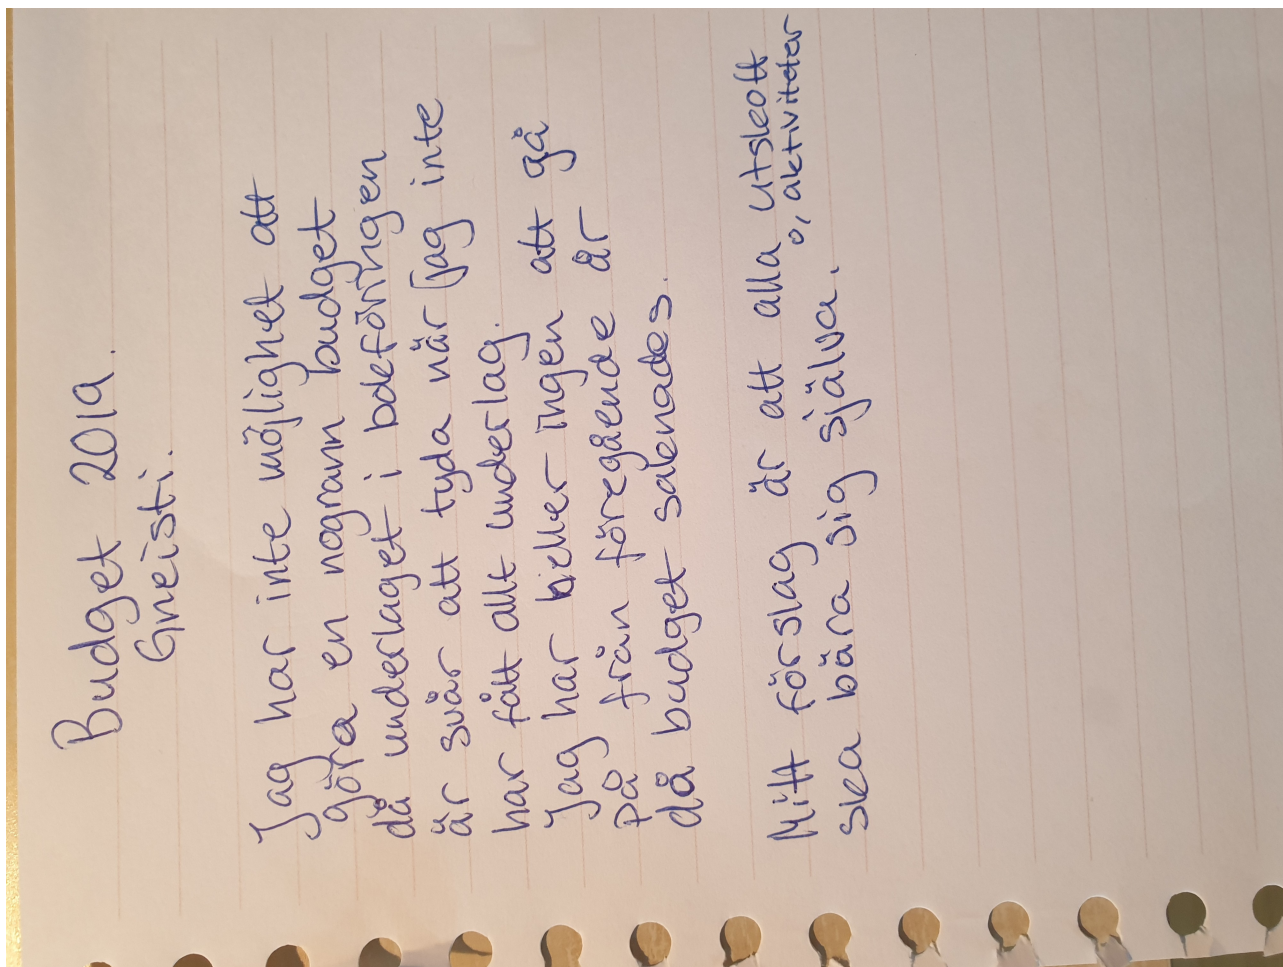 Budget 2019.
Gneisti.
Jag har inte möjlighet att
göra en nogrann budget
då underlaget i bokföringen
är svår att tyda när jag inte
har fått allt underlag.
Jag har heller ingen att gå
på från föregående år
då budget saknades.
Mitt förslag är att alla utskott
o, aktiviteter
ska bära sig själva.